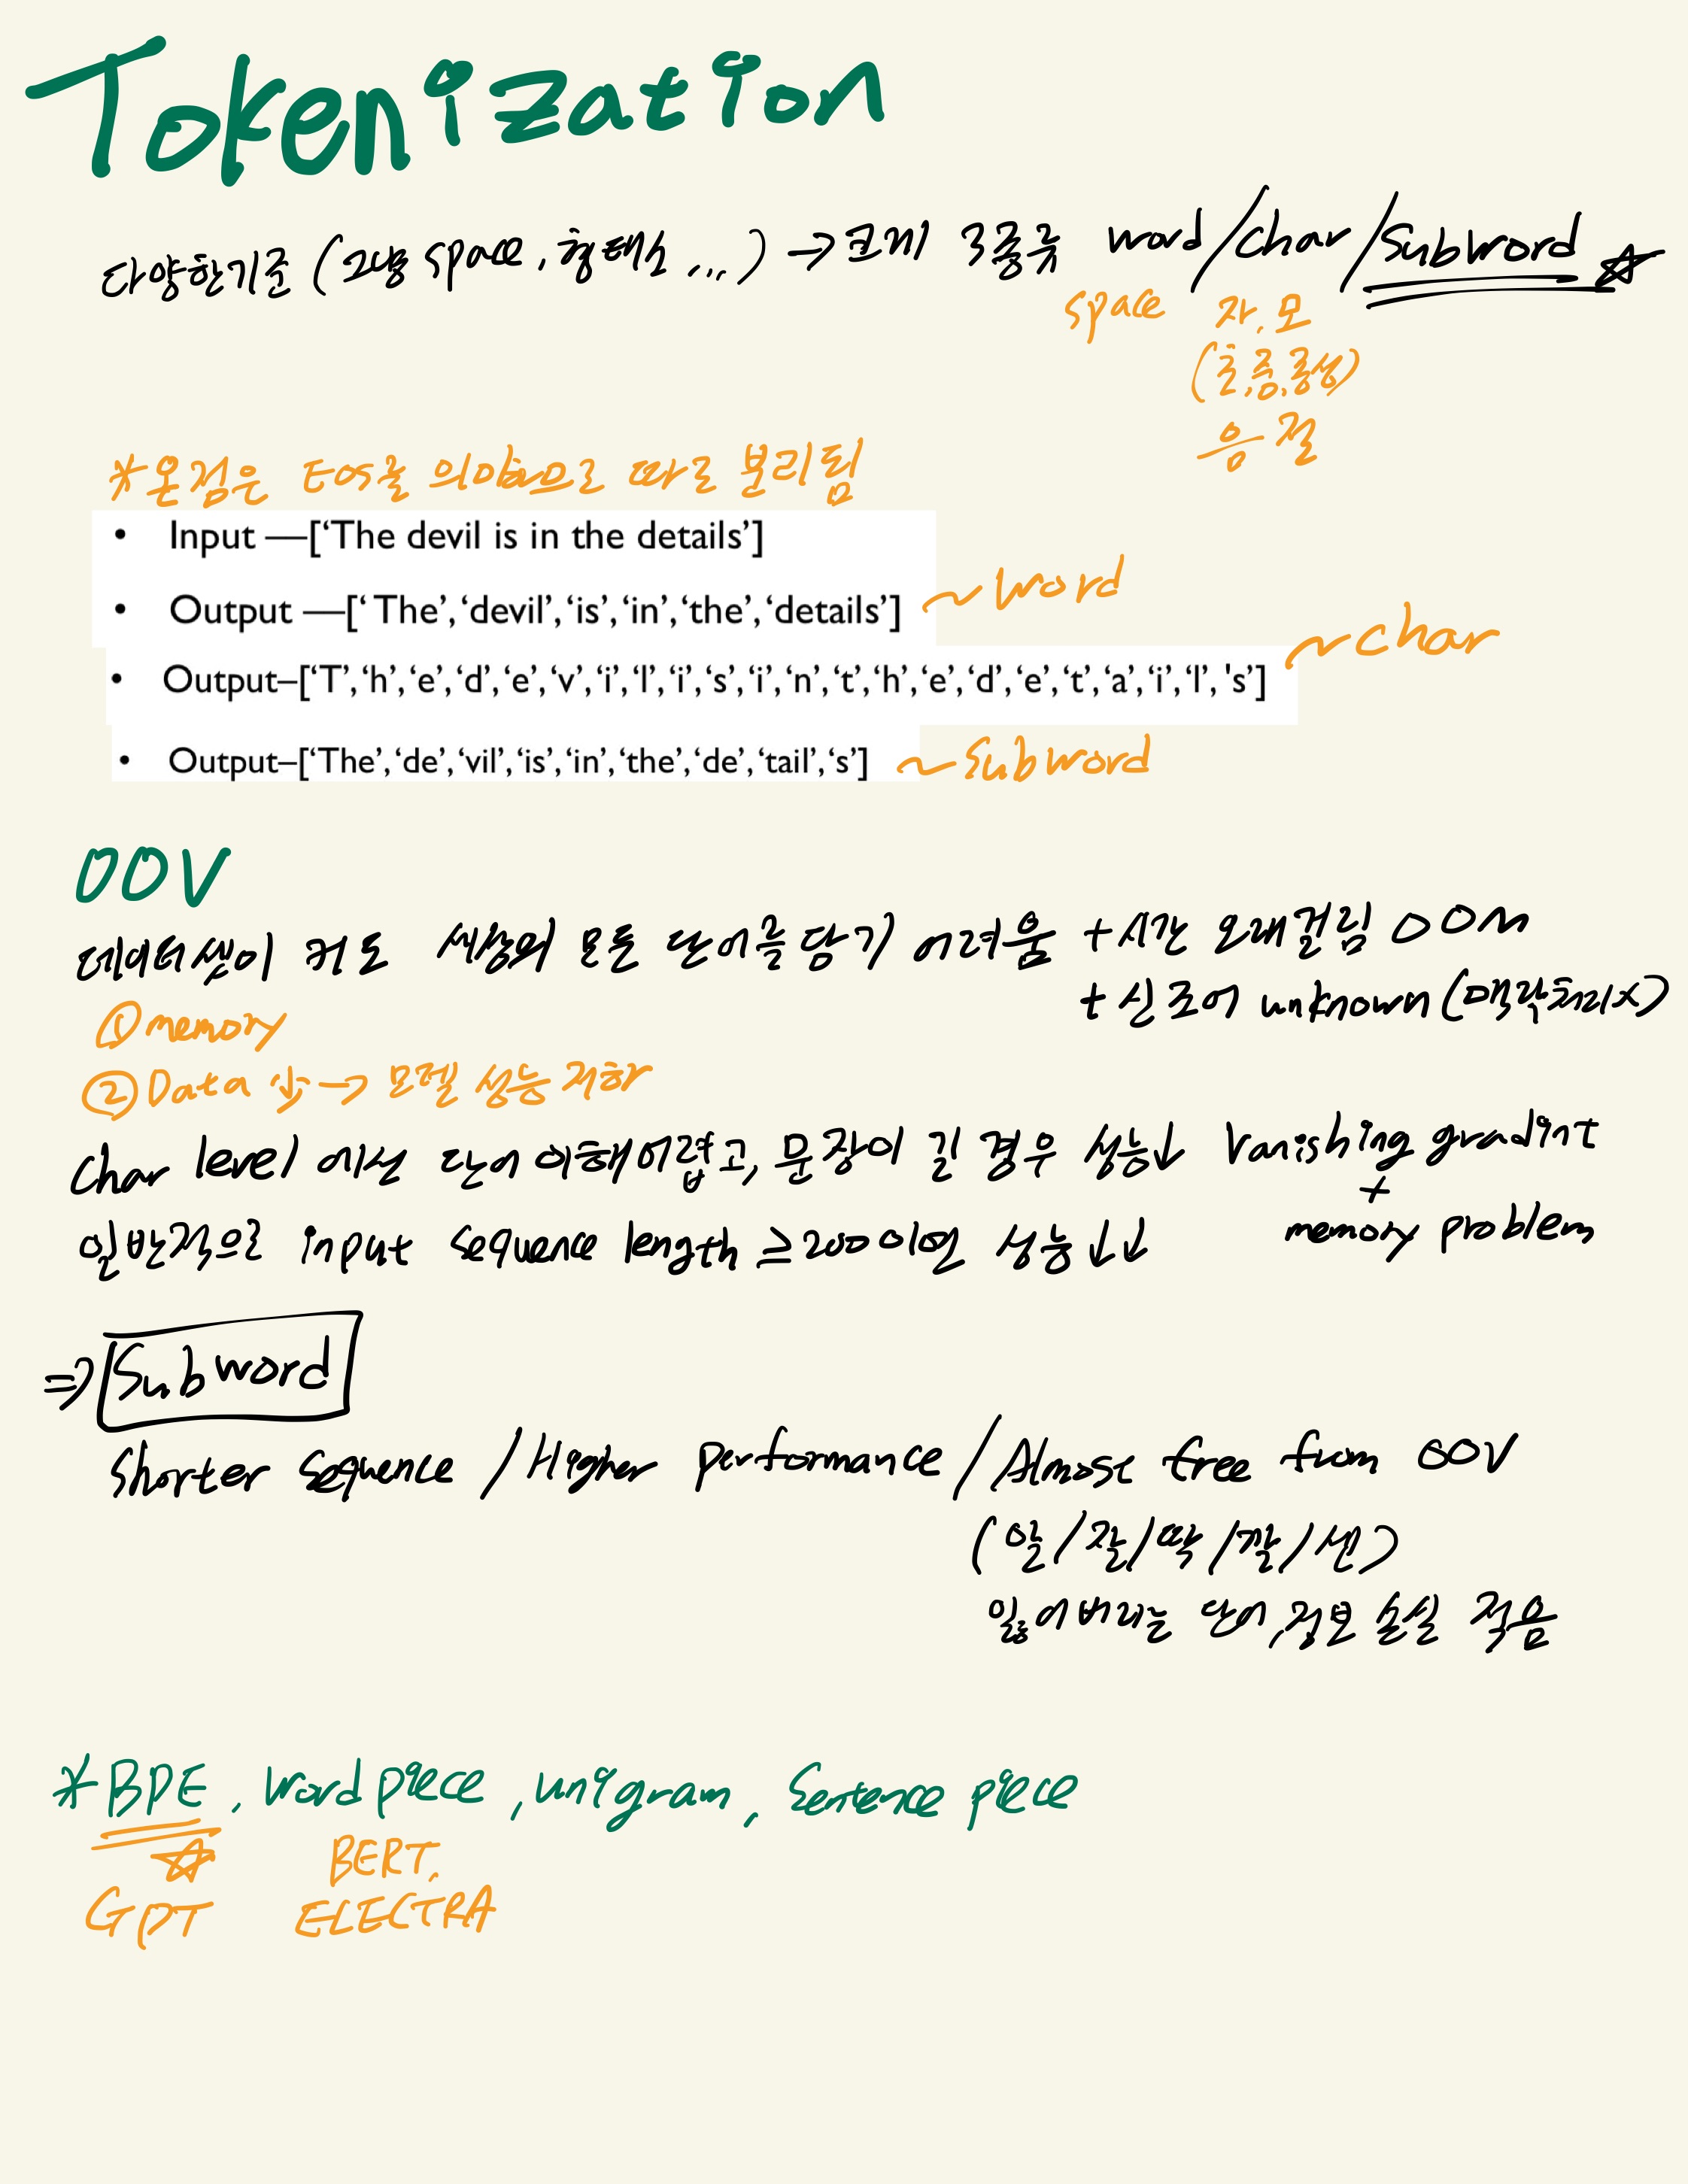 Tokenization
다양한기준 (그냥 space, 형태소 ...) → 크게 3종류 word/char/subword ☆
space 자, 모
(초,중,종성)
음절
*온점은 EOS를 의미하므로 따로 분리됨
• Input —[‘The devil is in the details’]
• Output —[‘ The’, ‘devil’, ‘is’, ‘in’, ‘the’, ‘details’] ~word
• Output–[‘T’, ‘h’, ‘e’, ‘d’, ‘e’, ‘v’, ‘i’, ‘l’, ‘i’, ‘s’, ‘i’, ‘n’, ‘t’, ‘h’, ‘e’, ‘d’, ‘e’, ‘t’, ‘a’, ‘i’, ‘l’, 's’] ~char
• Output–[‘The’, ‘de’, ‘vil’, ‘is’, ‘in’, ‘the’, ‘de’, ‘tail’, ‘s’] ~Subword
OOV
데이터셋이 커도 세상의 모든 단어를 담기 어려움 +시간 오래걸림 OOM
+ 신조어 unknown (맥락처리x)
① memory
② Data ↓ → 모델 성능 저하
Char level 에선 단어 이해어렵고, 문장이 길 경우 성능↓ Vanishing gradint
+
memory problem
일반적으로 input sequence length ≥200이면 성능↓↓
⇒ Subword
Shorter sequence / Higher performance / Almost free from OOV
(알/잘/딱/깔/센)
잃어버리는 단어, 정보 손실 적음
*BPE, Word piece, unigram, Sentence piece
☆ BERT,
GPT ELECTRA